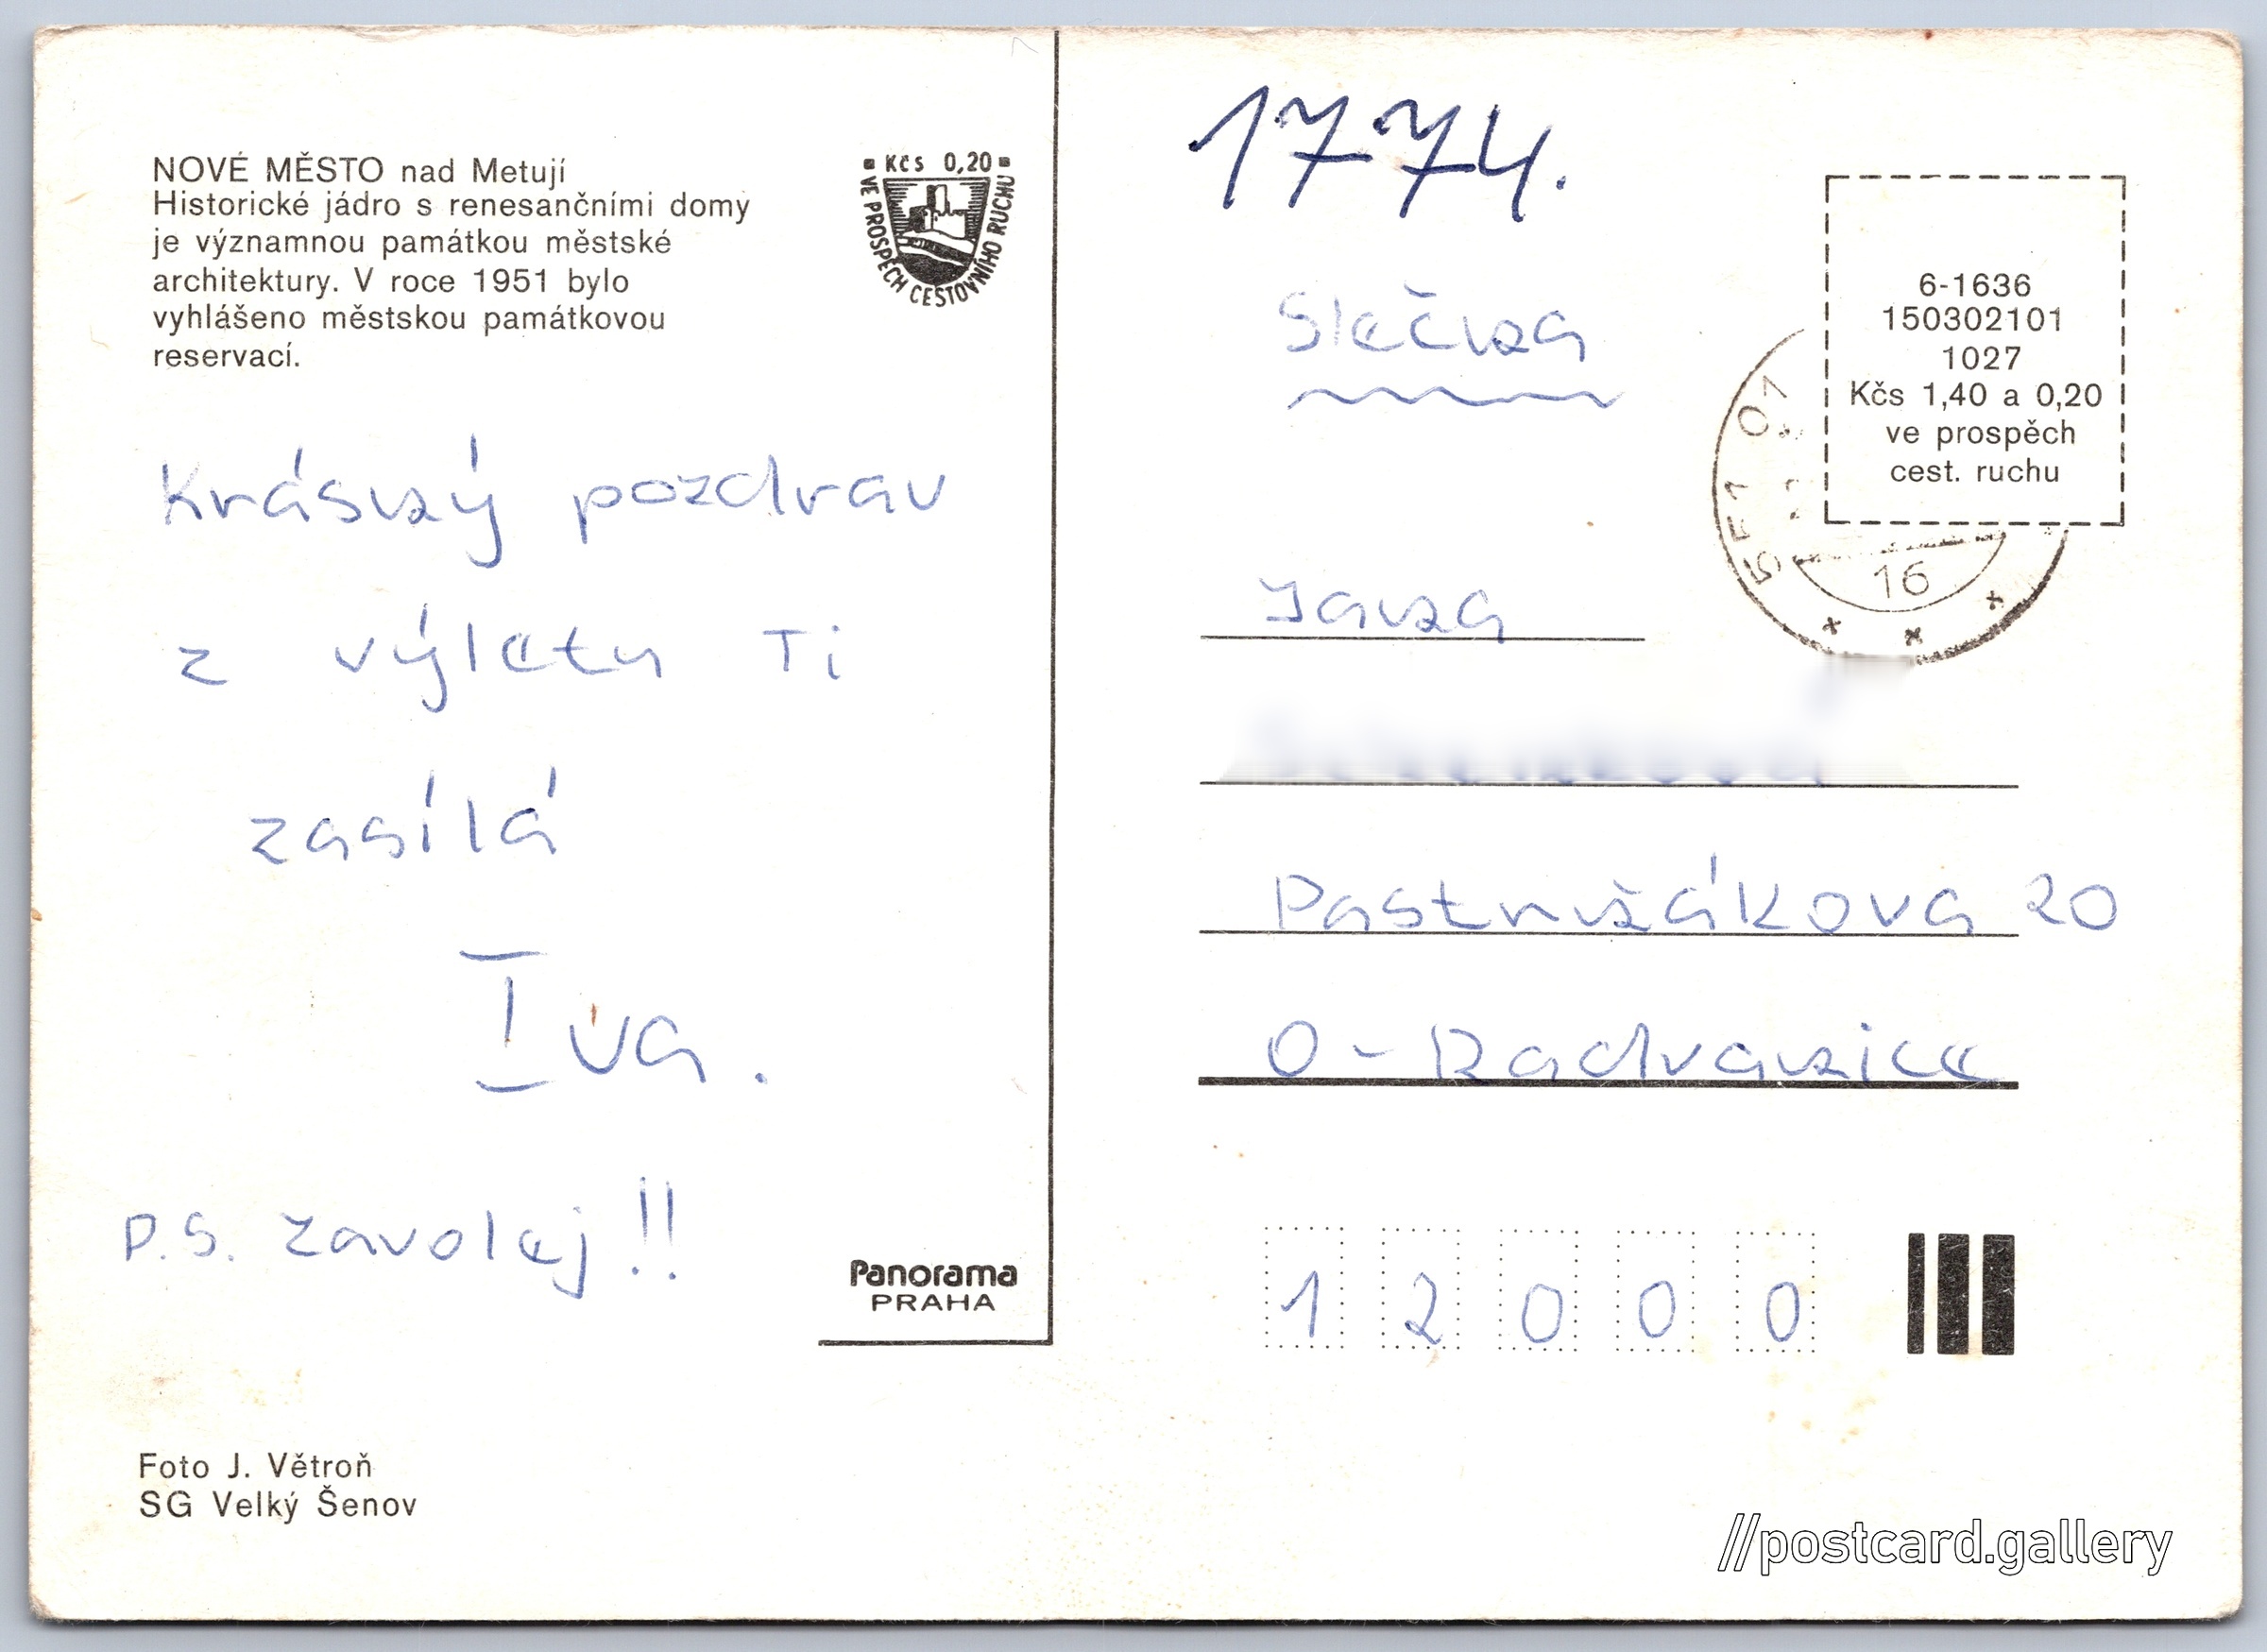 NOVÉ MĚSTO nad Metují
Historické jádro s renesančními domy
je významnou památkou městské
architektury. V roce 1951 bylo
vyhlášeno městskou památkovou
reservací.
Kčs 0,20
VE PROSPĚCH CESTOVNÍHO RUCHU
Krásný pozdrav
z výletu Ti
zasílá
Iva.
P.S. zavolej!!
Panorama
PRAHA
Foto J. Větroň
SG Velký Šenov
1774.
6-1636
150302101
1027
Kčs 1,40 a 0,20
ve prospěch
cest. ruchu
551 01
16
Slečna
Jana
Pastrňákova 20
O - Radvanice
12000
//postcard.gallery